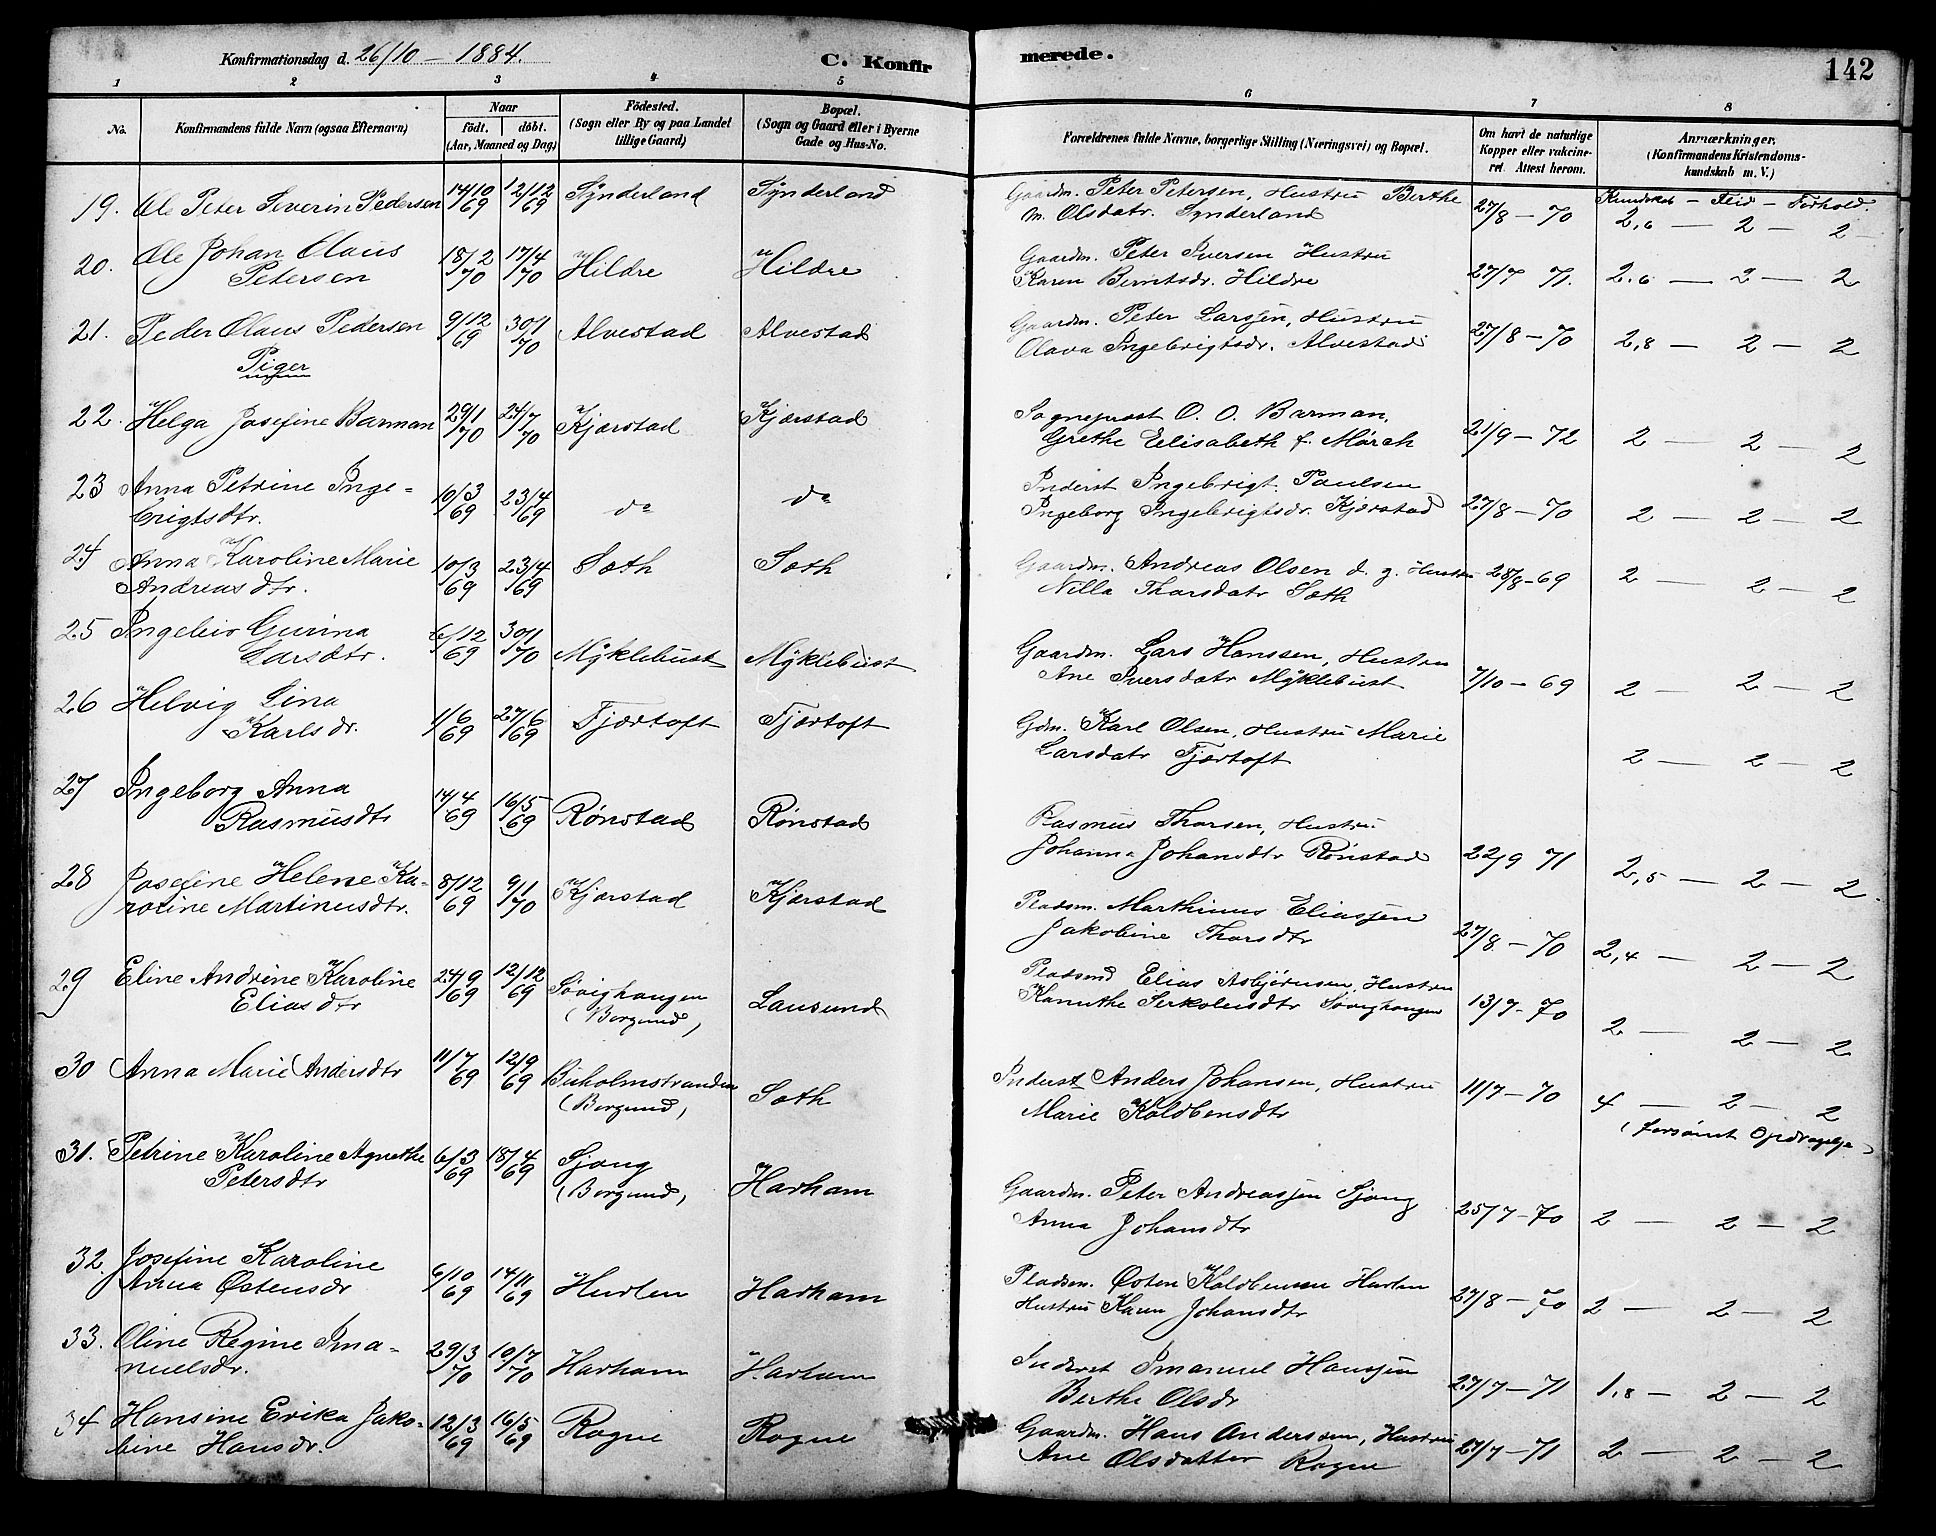 Konfirmationsdag d. 26/10 – 1884.
C. Konfirmerede.
142
1 2 3 4 5 6 7 8
No.
Konfirmandens fulde Navn (ogsaa Efternavn)
Naar
født. døbt.
(Aar, Maaned og Dag)
Fødested.
(Sogn eller By og paa Landet
tillige Gaard)
Bopæl.
(Sogn og Gaard eller i Byerne
Gade og Hus-No.
Forældrenes fulde Navne, borgerlige Stilling (Næringsvei) og Bopæl.
Om havt de naturlige
Kopper eller vakcine-
ret. Attest herom.
Anmærkninger.
(Konfirmandens Kristendoms-
kundskab m. V.)
Kundskab – Flid – Forhold.
19. Ole Peter Severin Pedersen 14/10 69 12/12 69 Synderland Synderland Gaardm. Peter Petersen, Hustru Berthe
M. Olsdatr. Synderland 27/8 – 70 2,6 – 2 – 2
20. Ole Johan Olaus
Petersen 18/2 70 17/4 70 Hildre Hildre Gaardm. Peter Iversen Hustru
Karen Berntsdr. Hildre 27/7 71. 2,6 – 2 – 2
21. Peder Olaus Pedersen 9/12 69 30/1 70 Alvestad Alvestad Gaardm. Peter Larsen, Hustru
Olava Ingebrigtsdr. Alvestad 27/8 – 70 2,8 – 2 – 2
Piger
22. Helga Josefine Barman 29/1 70 24/7 70 Kjærstad Kjærstad Sognepræst O. O. Barman,
Grethe Elisabeth f. March 21/9 – 72 2 – 2 – 2
23 Anna Petrine Inge-
brigtsdtr. 10/3 69 23/4 69 do do Inderst Ingebrigt Paulsen
Ingeborg Ingebrigtsdr. Kjærstad 27/8 – 70 2 – 2 – 2
24 Anna Karoline Marie
Andreasdtr. 10/3 69 23/4 69 Sæth Sæth Gaardm. Andreas Olsen d. g. Hustru
Nilla Thorsdatr Sæth 28/8 – 69 2 – 2 – 2
25 Gurina
Larsdtr. 6/12 69 30/1 70 Myklebust Myklebust Gaardm. Lars Hanssen, Hustru
Ane Iversdatr Myklebust 7/10 – 69 2 – 2 – 2
26 Helvig Lina
Karlsdr. 1/6 69 27/6 69 Fjærtoft Fjærtoft Gdm. Karl Olsen, Hustru Marie
Larsdatr Fjærtoft 2 – 2 – 2
27 Ingeborg Anna
Rasmusdtr 14/4 69 16/5 69 Rønstad Rønstad Rasmus Thorsen, Hustru
Johanna Johansdtr Rønstad 22/9 71 2,5 – 2 – 2
28 Josefine Helene Ka-
roline Martinusdtr. 8/12 69 9/1 70 Kjærstad Kjærstad Pladsm. Marthinus Eliassen
Jakobine Thorsdtr 27/8 – 70 2,4 – 2 – 2
29 Eline Andrine Karoline
Eliasdtr 24/9 69 12/12 69 Søvighaugen
(Borgund) Lausund Pladsmd Elias Asbjørnsen, Hustru
Søvighaugen 13/7 – 70 2 – 2 – 2
30 Anna Marie Andersdtr 11/7 69 12/9 69
(Borgund) Sæth Inderst Anders Johansen, Hustru
Marie Koldbensdtr 11/7 – 70 4 – 2 – 2
(forsømt Opdragelse)
31. Petrine Karoline Agnethe
Petersdtr 6/3 69 18/4 69 Sjong
(Borgund) Harham Gaardm. Peter Andreassen Sjong
Anna Johansdtr 25/7 – 70 2 – 2 – 2
32. Josefine Karoline
Anna Østensdr 6/10 69 14/11 69 Hurlen Harham Pladsm. Østen Koldbensen Hurlen
Hustru Karen Johansdtr 27/8 – 70 2 – 2 – 2
33. Oline Regine Ima-
nuelsdr. 29/3 70 10/7 70 Harham Harham Inderst Imanuel Hanssen
Berthe Olsdr 27/7 – 71 1,8 – 2 – 2
34 Hansine Erika Jako-
bine Hansdr. 12/3 69 16/5 69 Rogne Rogne Gaardm. Hans Anderssen, Hustru
Ane Olsdatter Rogne 27/7 – 71 2 – 2 – 2